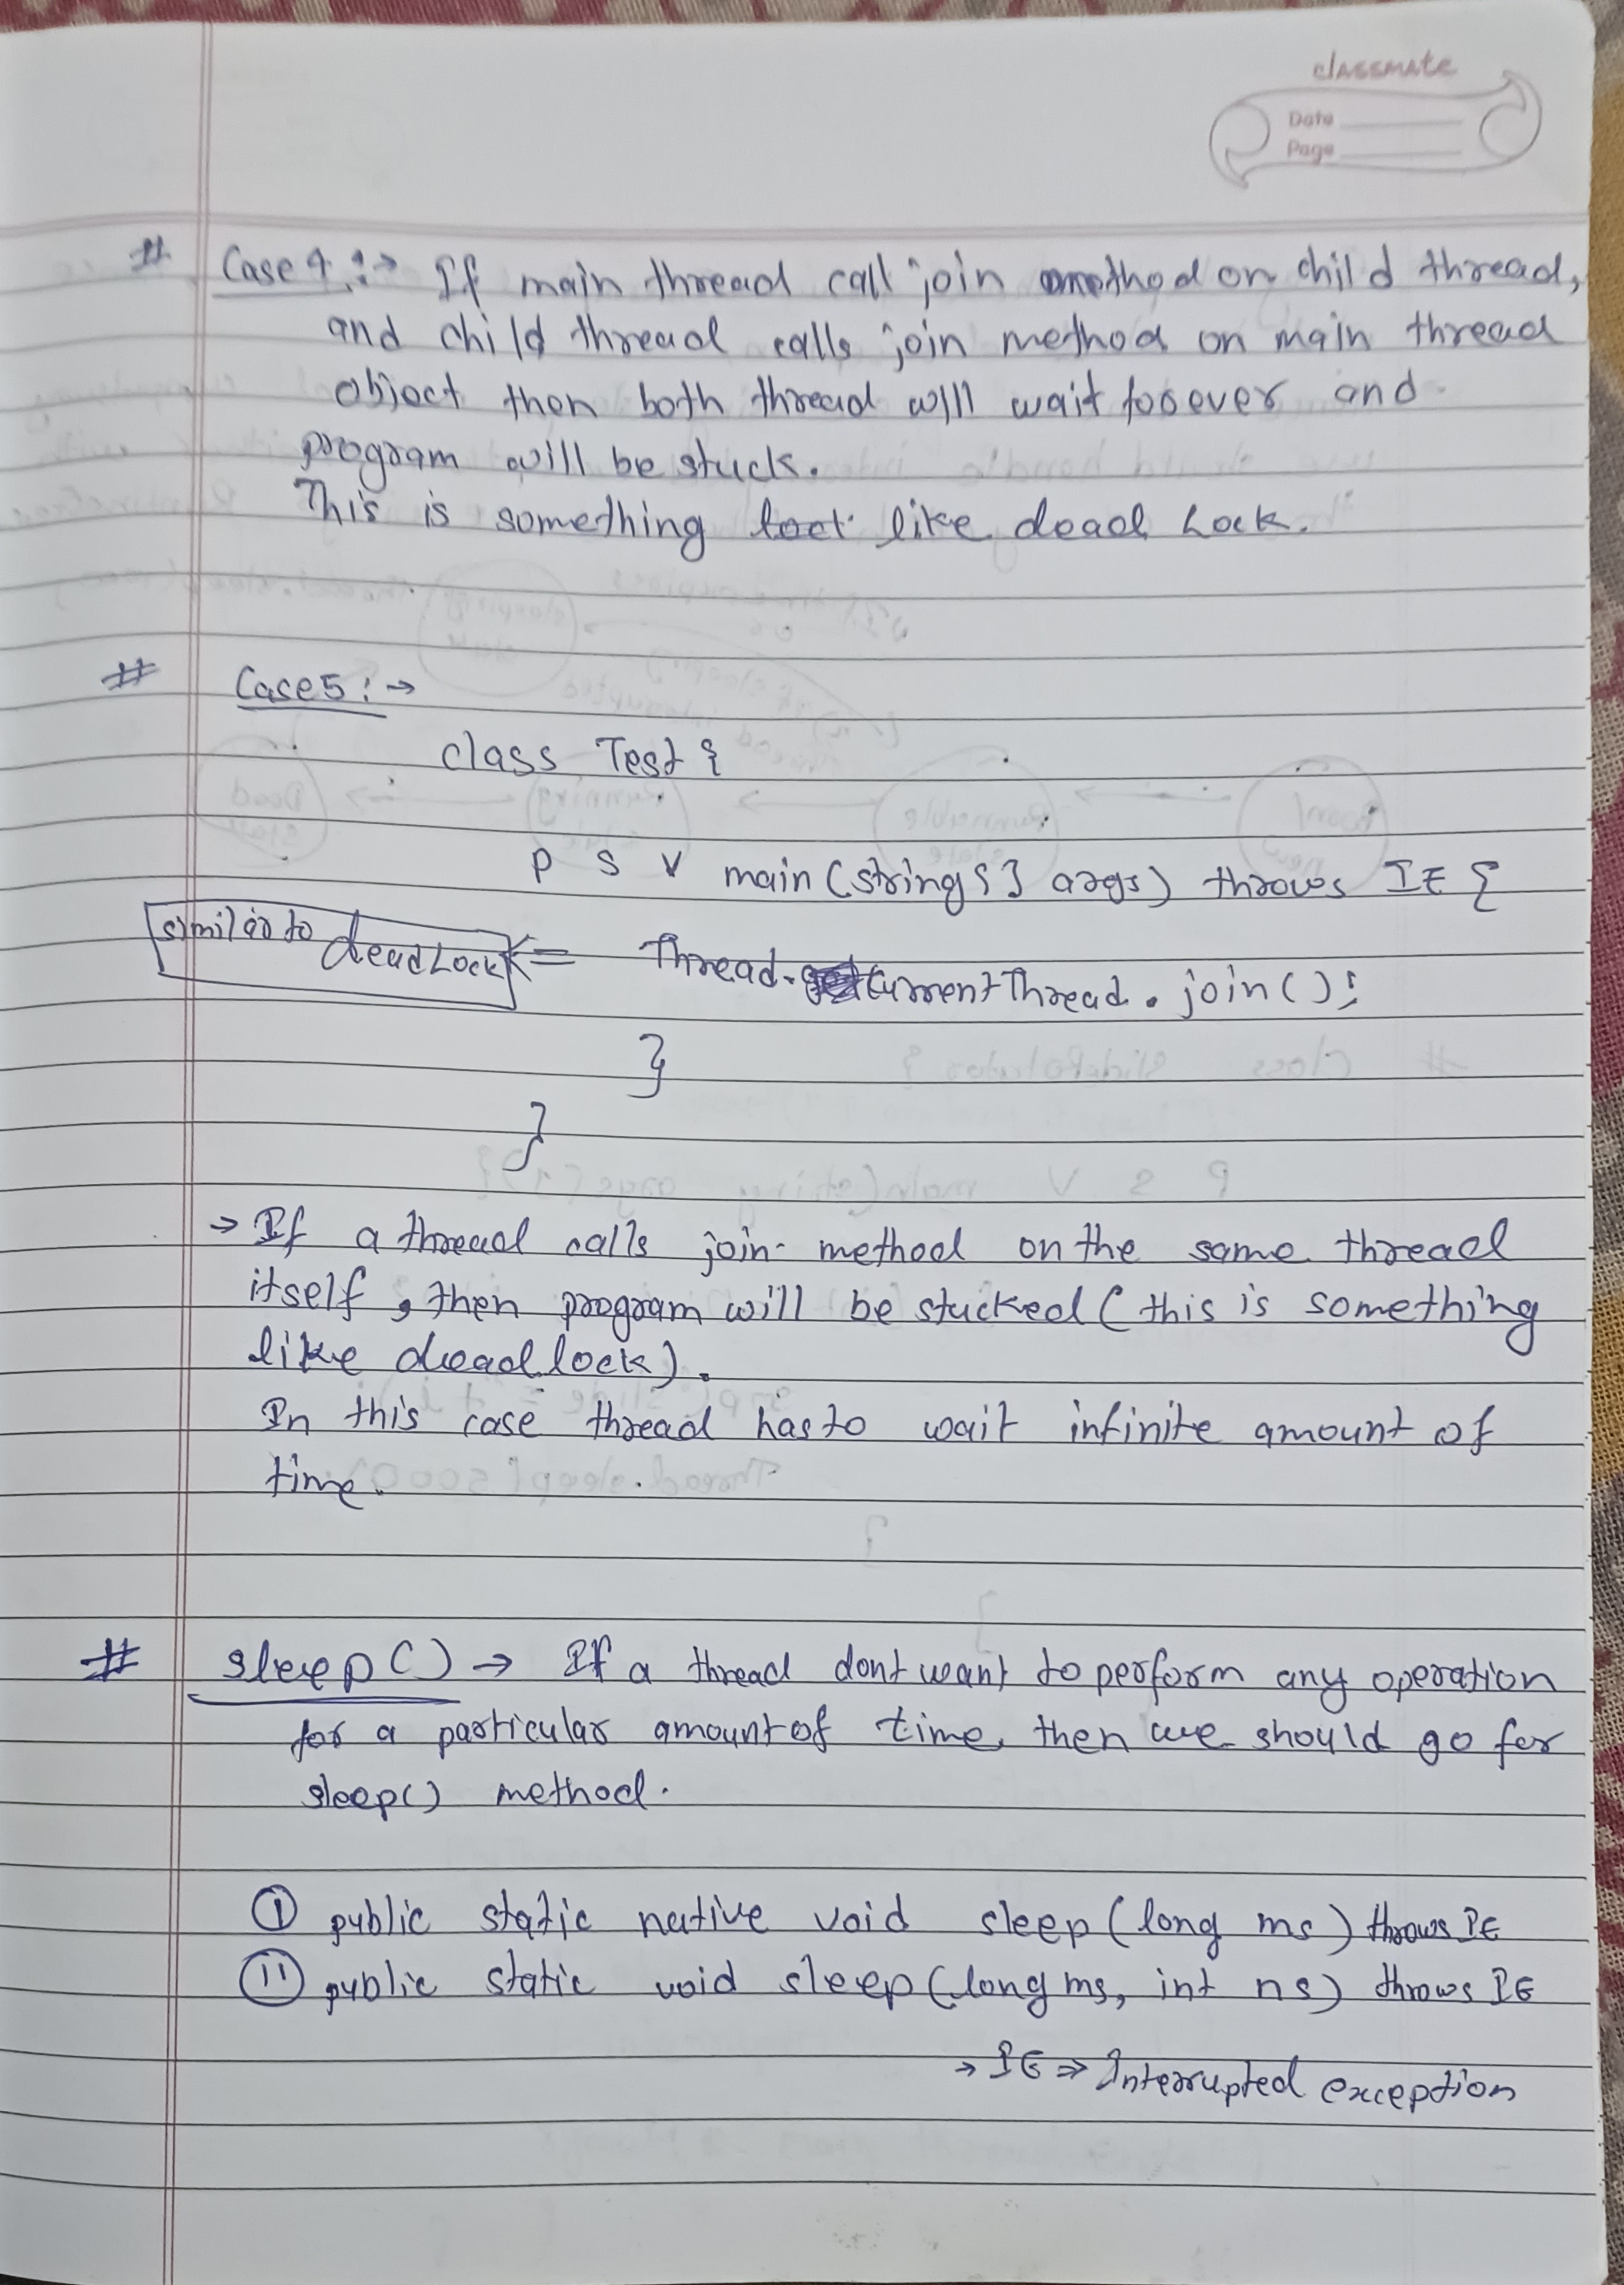 classmate
Date
Page
# Case 4 :→ If main thread call join method on child thread,
and child thread calls join method on main thread
object then both thread will wait forever and
program will be stuck.
This is something like dead Lock.
# Case 5 :→
class Test {
P S V main (string [ ] args) throws IE {
similar to deadLock <= Thread. CurrentThread . join ( ) ;
}
}
→ If a thread calls join method on the same thread
itself , then program will be stucked ( this is something
like dead lock ) .
In this case thread has to wait infinite amount of
time.
# sleep ( ) → If a thread dont want to perform any operation
for a particular amount of time, then we should go for
sleep( ) method.
(I) public static native void sleep ( long ms ) throws IE
(II) public static void sleep ( long ms, int ns ) throws IE
→ IE => Interrupted exception